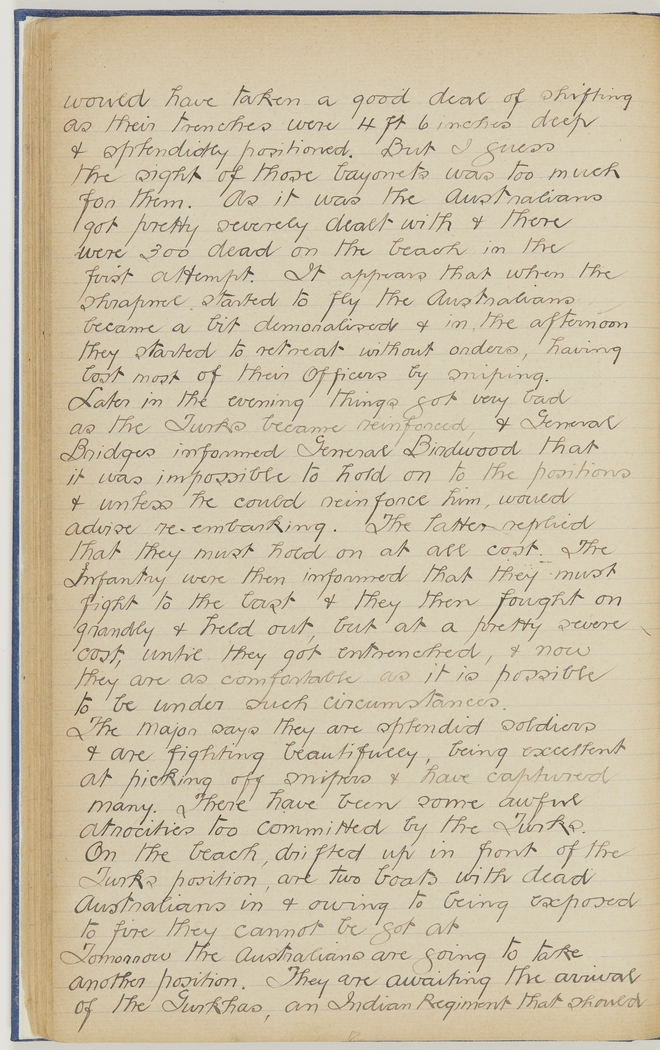 would have taken a good deal of shifting
as their trenches were 4 ft 6 inches deep
& splendidly positioned. But I guess
the sight of those bayonets was too much
for them. As it was the Australians
got pretty severely dealt with & there
were 300 dead on the beach in the
first attempt. It appears that when the
shrapnel started to fly the Australians
became a bit demoralised & in the afternoon
they started to retreat without orders, having
lost most of their Officers by sniping.
Later in the evening things got very bad
as the Turks became reinforced, & General
Bridges informed General Birdwood that
it was impossible to hold on to the positions
& unless he could reinforce him, would
advise re-embarking. The latter replied
that they must hold on at all cost. The
Infantry were then informed that they must
fight to the last & they then fought on
grandly & held out, but at a pretty severe
cost, until they got entrenched, & now
they are as comfortable as it is possible
to be under such circumstances.
The Major says they are splendid soldiers
& are fighting beautifully, being excellent
at picking off snipers & have captured
many. There have been some awful
atrocities too committed by the Turks.
On the beach, drifted up in front of the
Turks position, are two boats with dead
Australians in & owing to being exposed
to fire they cannot be got at
Tomorrow the Australians are going to take
another position. They are awaiting the arrival
of the Gurkhas, an Indian Regiment that should